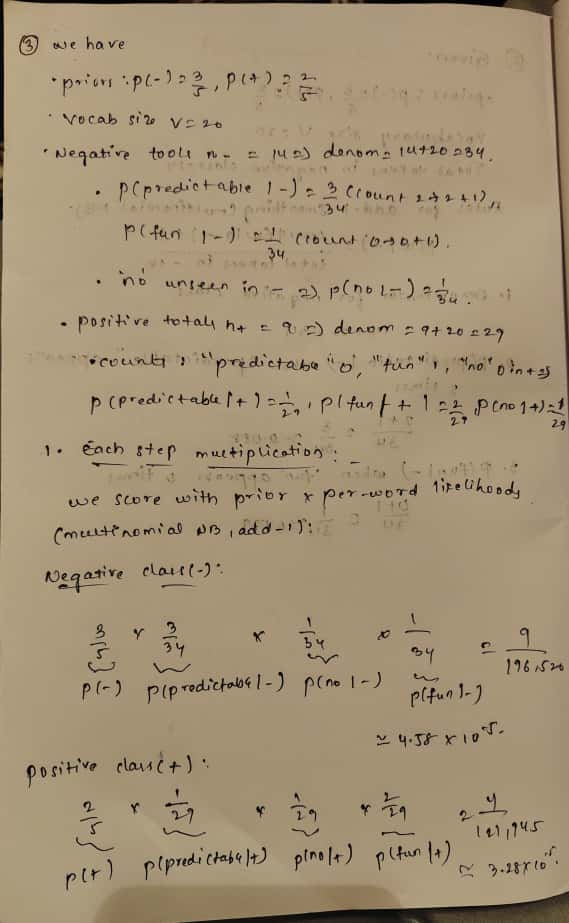 ③ we have
• priors : p(-) = 3/5 , p(+) = 2/5
• vocab size V = 20
• Negative totals n- = 14 => denom = 14+20 = 34.
• p(predictable | -) = 3/34 (count 2 → 2+1),
p(fun | -) = 1/34 (count 0 → 0+1).
• "no" unseen in - => p(no | -) = 1/34.
• positive totals n+ = 9 => denom = 9+20 = 29
• counts : "predictabe" 0, "fun" 1, "no" 0 in + =>
p(predictable | +) = 1/29, p(fun | +) = 2/29, p(no | +) = 1/29
1. Each step multiplication : -
we score with prior x per-word likelihoods
(multinomial NB, add-1):
Negative class(-):
3/5 x 3/34 x 1/34 x 1/34 = 9/196,520
p(-) p(predictabe | -) p(no | -) p(fun | -)
≃ 4.58 x 10^-5.
positive class(+):
2/5 x 1/29 x 1/29 x 2/29 = 4/121,945
p(+) p(predictabe | +) p(no | +) p(fun | +) ≃ 3.28 x 10^-5.